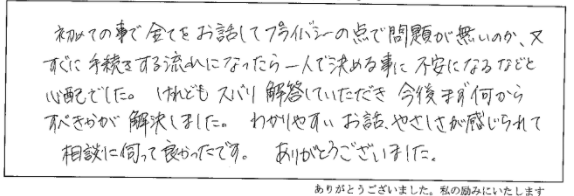 初めての事で全てをお話してプライバシーの点で問題が無いのか、又
すぐに手続きする流れになったら一人で決める事に不安になるなどと
心配でした。けれどもズバリ解答していただき今後まず何から
すべきかが解決しました。わかりやすいお話、やさしさが感じられて
相談に伺って良かったです。ありがとうございました。
ありがとうございました。私の励みにいたします